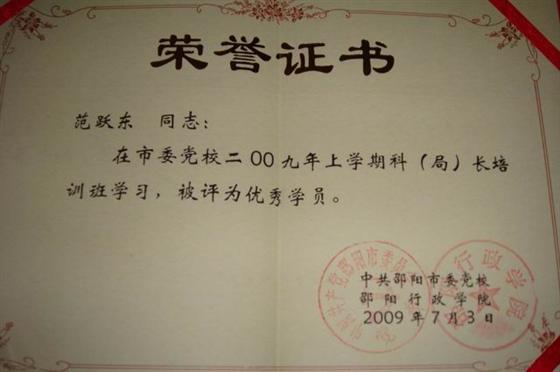 荣誉证书
范跃东 同志：
在市委党校二00九年上学期科（局）长培
训班学习，被评为优秀学员。
中共邵阳市委党校
邵阳行政学院
2009年7月3日